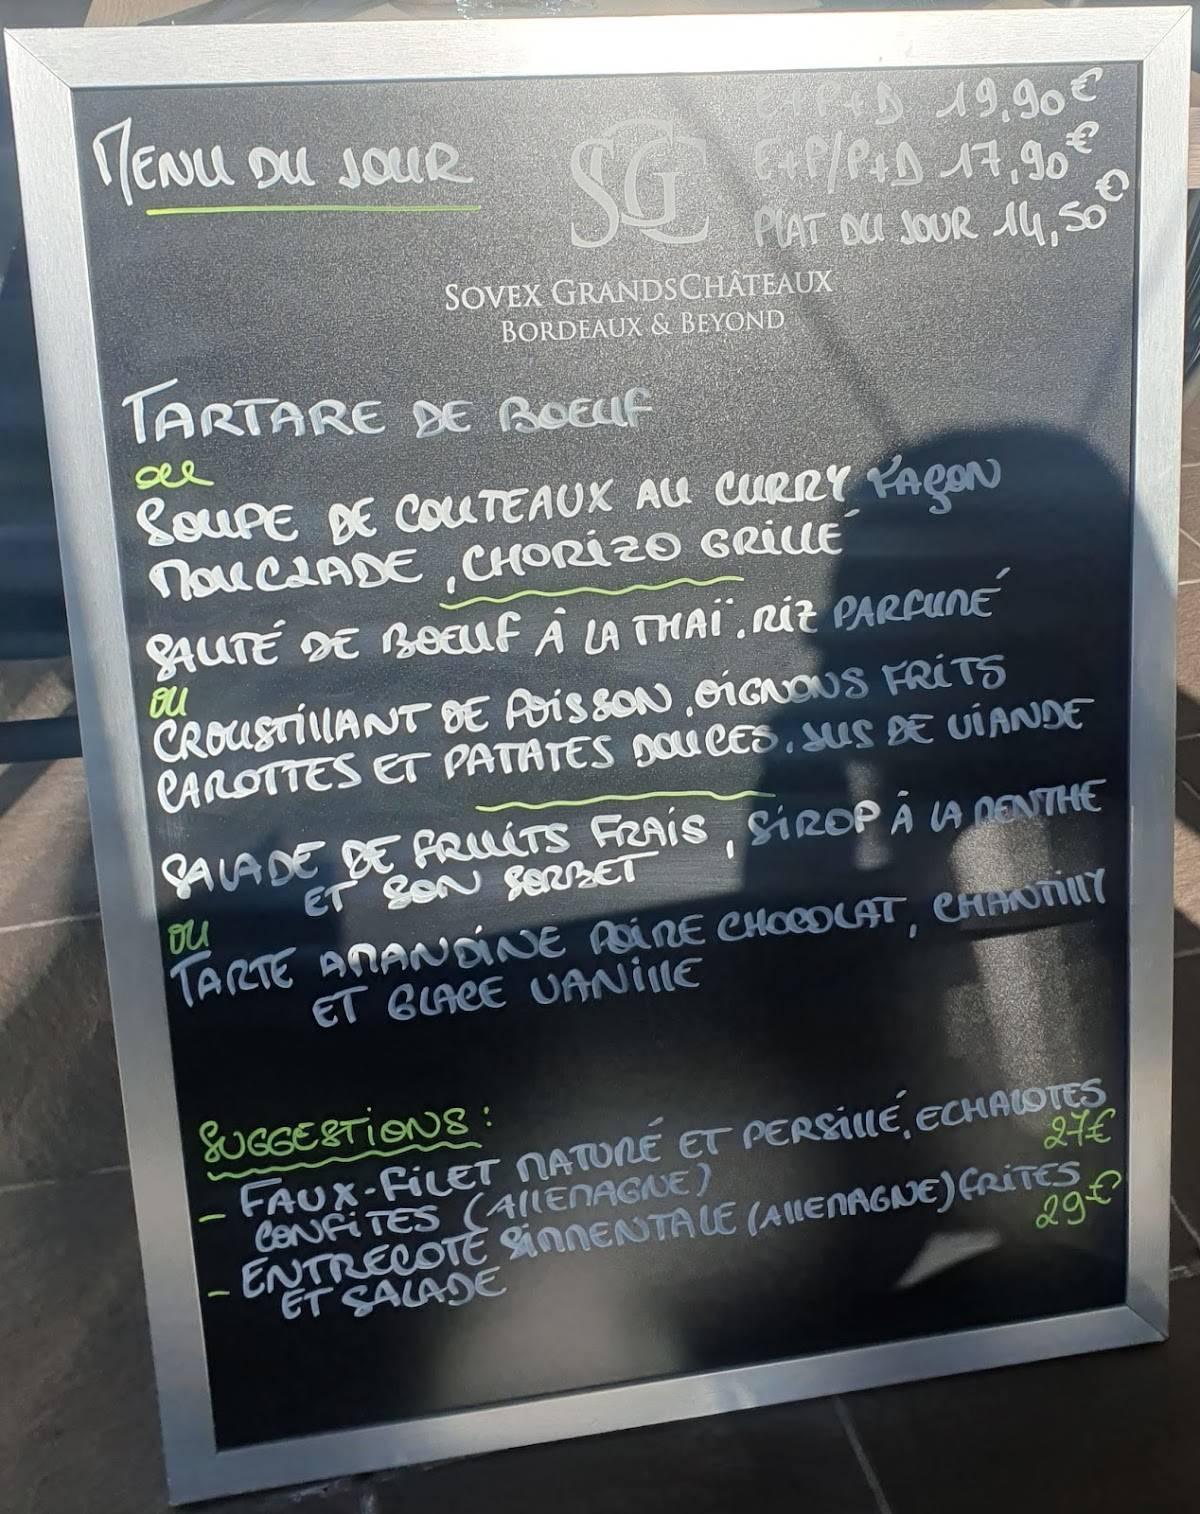 MENU DU JOUR
E+P+D 19,90€
E+P/P+D 17,90€
PLAT DU JOUR 14,50€
SGC
SOVEX GRANDSCHÂTEAUX
BORDEAUX & BEYOND
TARTARE DE BOEUF
ou
SOUPE DE COUTEAUX AU CURRY FAÇON
MOUCLADE, CHORIZO GRILLÉ
SAUTÉ DE BOEUF À LA THAÏ. RIZ PARFUMÉ
OU
CROUSTILLANT DE POISSON, OIGNONS FRITS
CAROTTES ET PATATES DOUCES. JUS DE VIANDE
SALADE DE FRUITS FRAIS, SIROP À LA MENTHE
ET SON SORBET
OU
TARTE AMANDINE POIRE CHOCOLAT, CHANTILLY
ET GLACE VANILLE
SUGGESTIONS:
- FAUX-FILET MATURÉ ET PERSILLÉ, ECHALOTES
CONFITES (ALLEMAGNE) 27€
- ENTRECOTE SIMMENTALE (ALLEMAGNE) FRITES
ET SALADE 29€